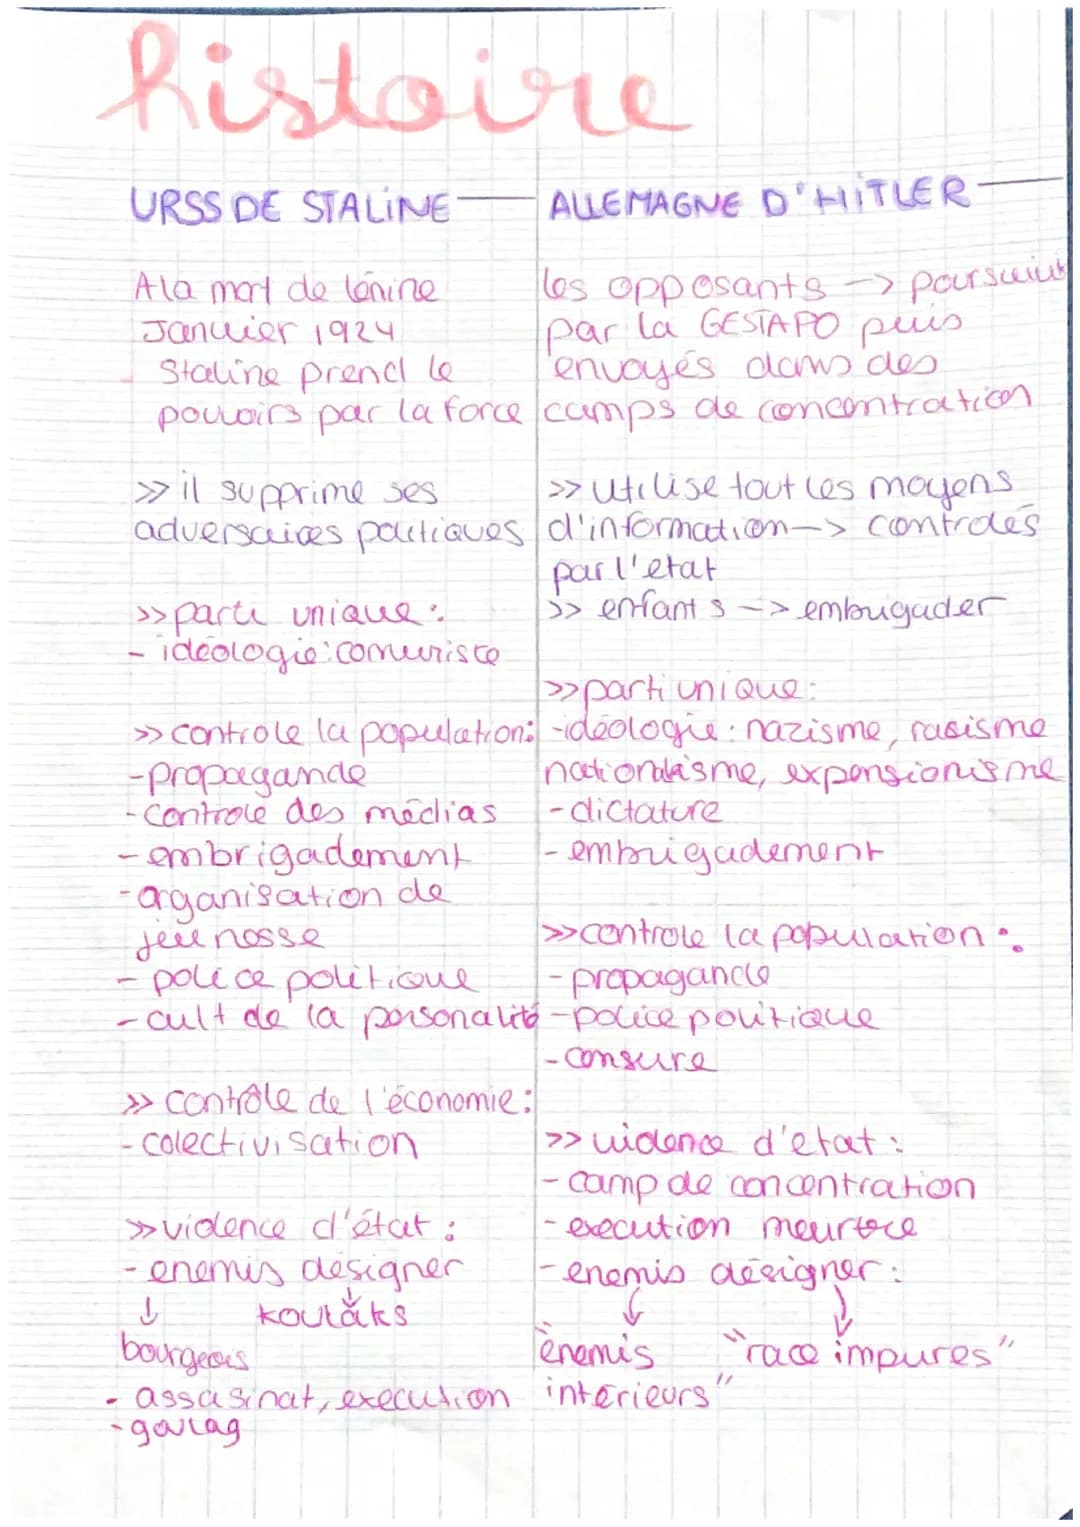 histoire
URSS DE STALINE
A la mort de lénine
Janvier 1924
Staline prend le
pouvoirs par la force
>> il supprime ses
adversaires politiques
>> parti unique :
- idéologie : comuniste
>> controle la population :
- propagande
- controle des médias
- embrigadement
- organisation de
jeunesse
- police politique
- cult de la personalité
>> contrôle de l'économie :
- colectivisation
>> violence d'état :
- enemis désigner
↓ ↓
koulaks
bourgeois
- assasinat, execution
- goulag
ALLEMAGNE D'HITLER
les opposants -> poursuivit
par la GESTAPO puis
envoyés dans des
camps de concentration
>> utilise tout les moyens
d'information -> controlés
par l'etat
>> enfants -> embrigader
>> parti unique :
- idéologie : nazisme, rasisme
nationalisme, expensionisme
- dictature
- embrigadement
>> controle la population :
- propagande
- police politique
- censure
>> violence d'etat :
- camp de concentration
- execution meurtre
- enemis désigner :
↓ ↓
"enemis "race impures"
intérieurs"